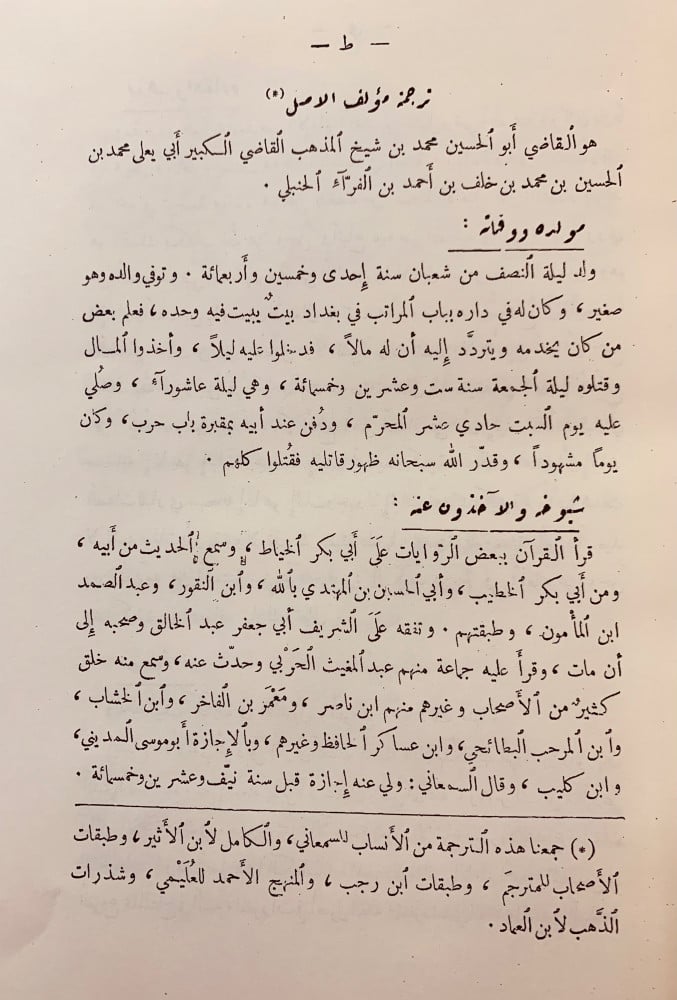 — ط —
ترجمة مؤلف الاصل (*)
هو ٱلقاضي أَبو ٱلحسين محمد بن شيخ ٱلمذهب ٱلقاضي ٱلكبير أَبي يعلى محمد بن
ٱلحسين بن محمد بن خلف بن أَحمد بن ٱلفرّآءِ ٱلحنبلي .
مولده ووفاته :
ولد ليلة ٱلنصف من شعبان سنة إِحدى وخمسين وأَربعمائة . وتوفي والده وهو
صغير ، وكان له في داره بباب ٱلمراتب في بغداد بيتٌ يبيت فيه وحده ، فعلم بعض
من كان يخدمه ويتردَّد إِليه أن له مالاً ، فدخلوا عليه ليلاً ، وأخذوا ٱلمـال
وقتلوه ليلة ٱلجمعة سنة ست وعشرين وخمسمائة ، وهي ليلة عاشورآءَ ، وصُلي
عليه يوم ٱلسبت حادي عشر ٱلمحرّم ، ودُفن عند أبيه بمقبرة باب حرب، وكان
يوماً مشهوداً ، وقدّر الله سبحانه ظهور قاتليه فقُتلوا كلهم .
شيوخه والآخذون عنه :
قرأ ٱلقرآن ببعض ٱلرّوايات علَى أَبي بكر ٱلخياط ، وسمع ٱلحديث من أَبيه ،
ومن أَبي بكر ٱلخطيب، وأَبي ٱلحسين بن ٱلمهتدي بٱلله ، وٱبن ٱلنقور، وعبد ٱلصمد
ابن ٱلمأْمون ، وطبقتهم . وتفقه علَى ٱلشريف أبي جعفر عبد ٱلخالق وصحبه إِلى
أن مات ، وقرأ عليه جماعة منهم عبد ٱلمغيث ٱلحَرْبي وحدّث عنه، وسمع منه خلق
كثيرٌ من ٱلأَصحاب وغيرهم منهم ابن ناصر ، ومَعْمَر بن ٱلفاخر ، وٱبن ٱلخشاب ،
وٱبن ٱلمرحب ٱلبطائحي، وابن عساكر ٱلحافظ وغيرهم ، وبٱلإِجازة أَبو موسى ٱلمديني،
وابن كليب ، وقال ٱلسمعاني : ولي عنه إِجازة قبل سنة نيّف وعشرين وخمسمائة .
(*) جمعنا هذه ٱلترجمة من ٱلأَنساب للسمعاني، وٱلكامل لٱبن ٱلأَثير ، وطبقات
ٱلأَصحاب للمترجَم ، وطبقات ٱبن رجب ، وٱلمنهج ٱلأَحمد للعُلَيْمي ، وشذرات
ٱلذَّهب لٱبن ٱلعماد .